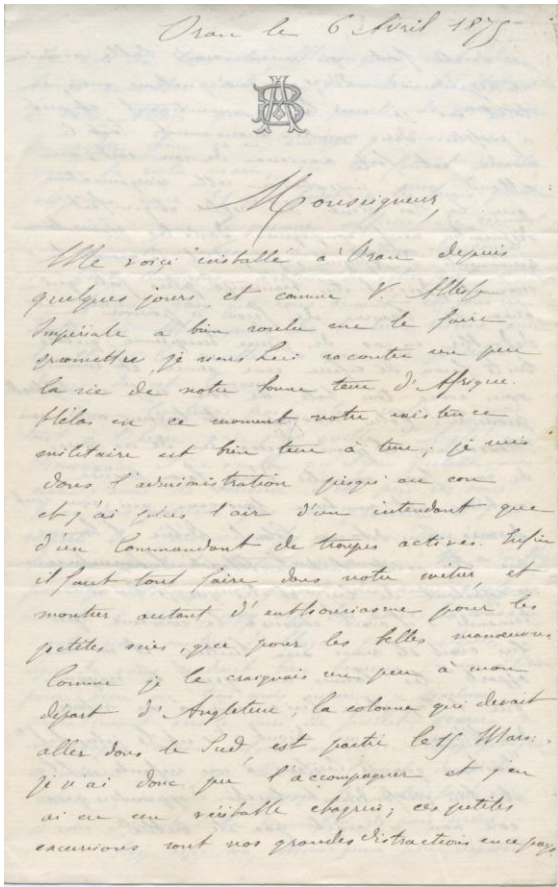 Oran le 6 Avril 1875
Monseigneur,
Me voiçi installé à Oran depuis
quelques jours, et comme V. Altesse
Impériale a bien voulu me le faire
promettre, je viens Lui raconter un peu
la vie de notre bonne terre d'Afrique.
Hélas en ce moment, notre existence
militaire est bien terre à terre; je suis
dans l'administration jusqu'au cou
et j'ai plus l'air d'un intendant que
d'un Commandant de troupes actives. Enfin
il faut tout faire dans notre métier, et
montrer autant d'enthousiasme pour les
petites, que pour les belles manœuvres
Comme je le craignais un peu à mon
départ d'Angleterre, la colonne qui devait
aller dans le Sud, est partie le 15 Mars.
je n'ai donc pu l'accompagner et j'en
ai eu un véritable chagrin; ces petites
excursions sont nos grandes distractions en ce pays